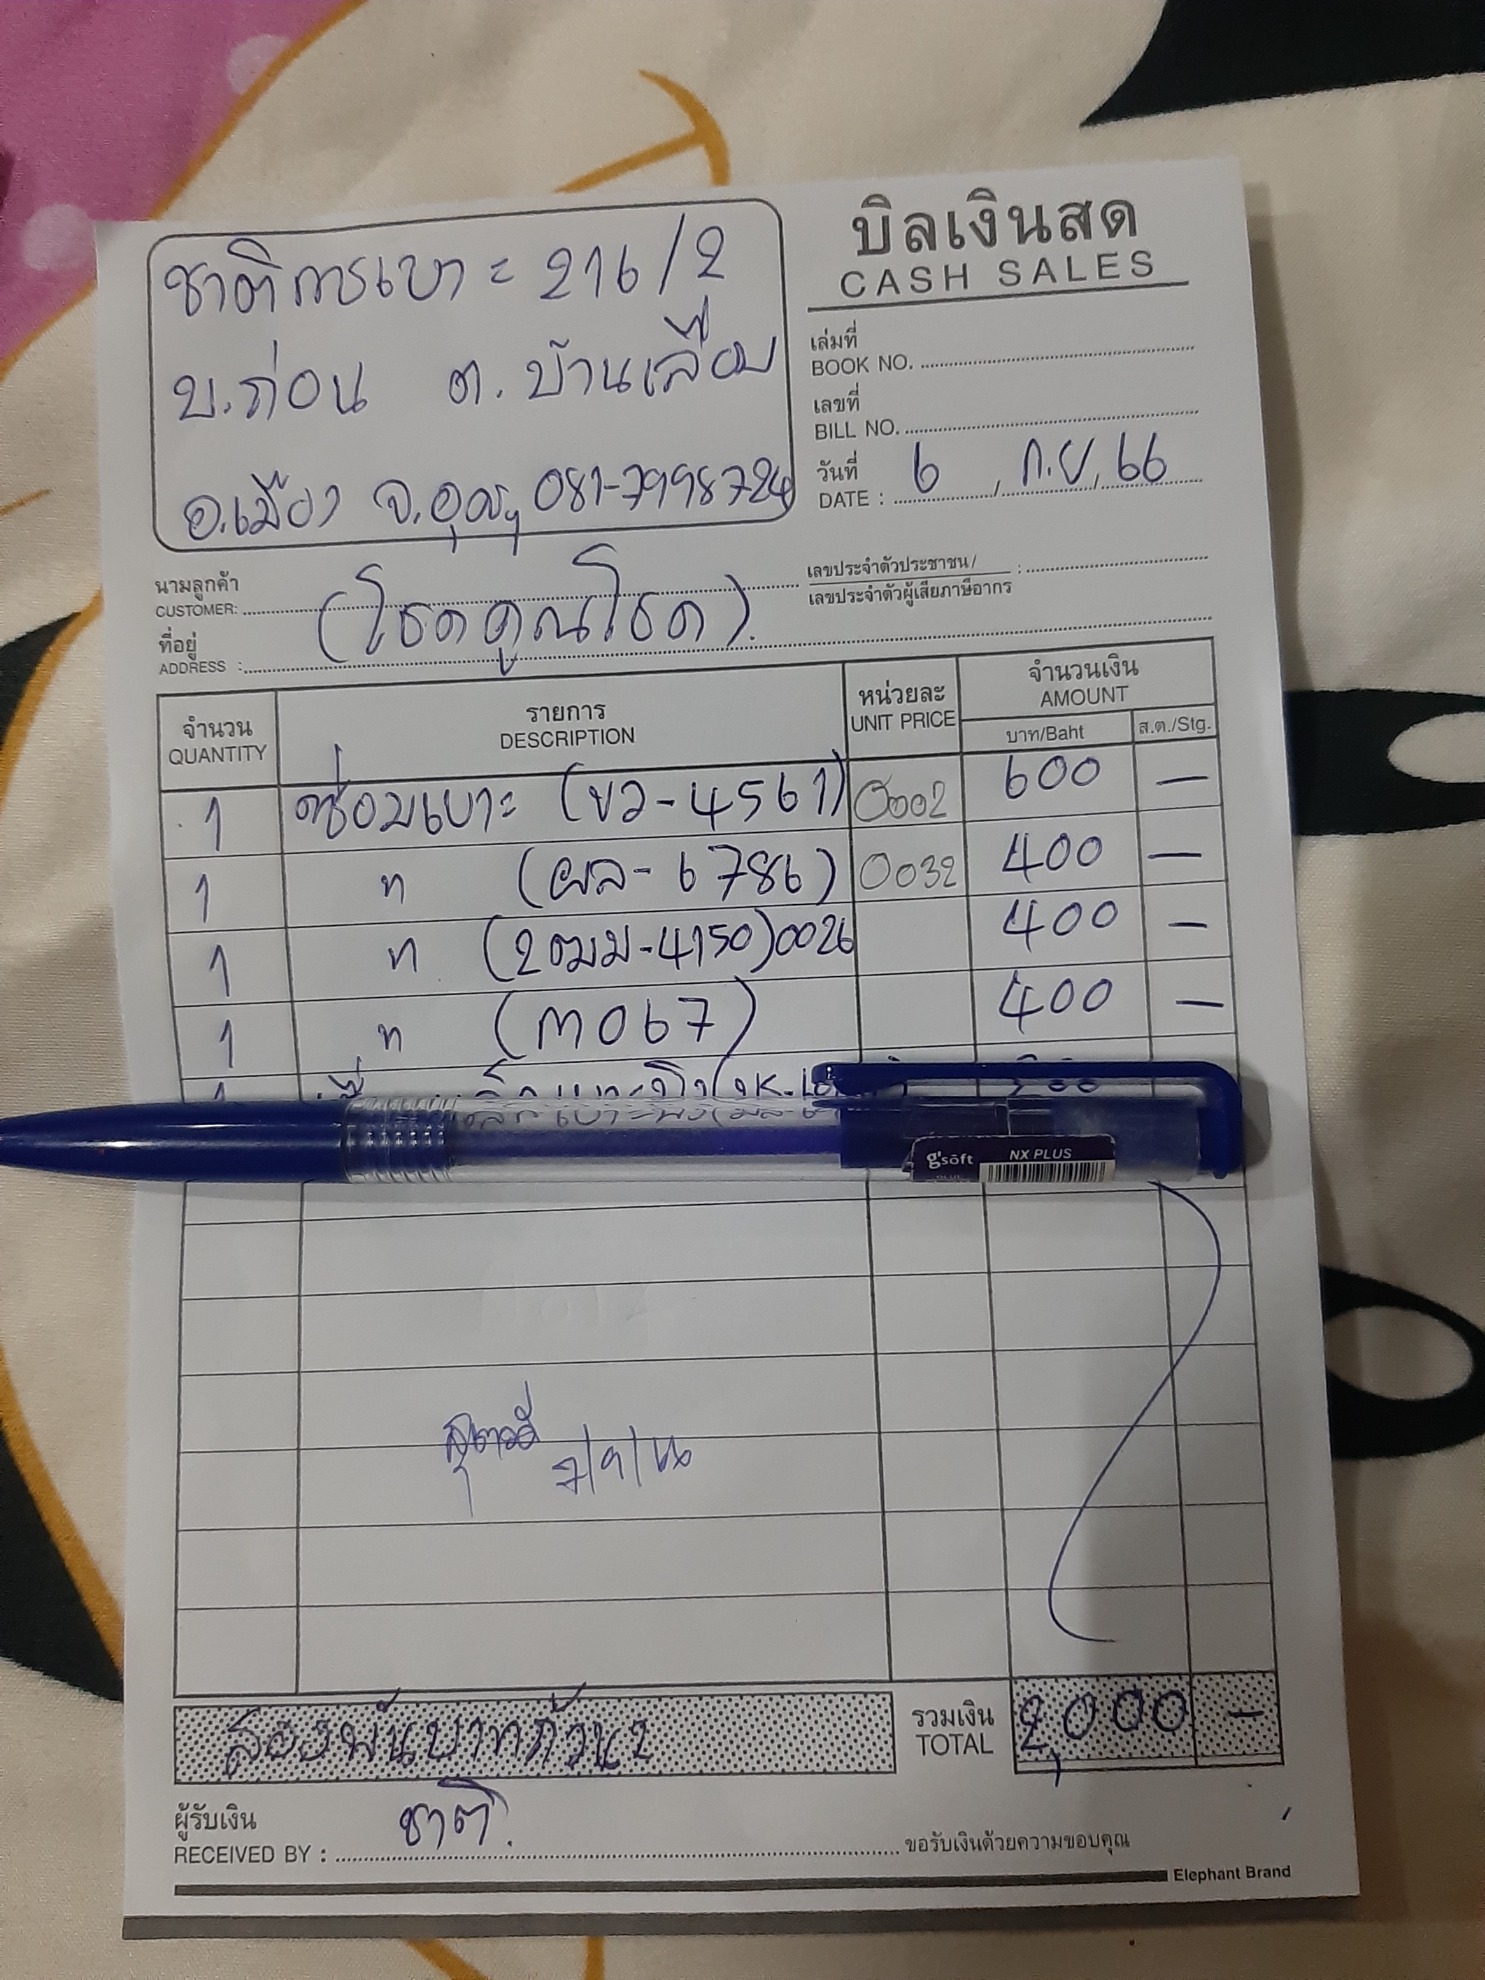 บิลเงินสด
CASH SALES
ชาติการเบาะ 216/2
บ.ก่อน ต.บ้านเลื่อม
อ.เมือง จ.อุดรฯ 081-7998724
เล่มที่
BOOK NO.
เลขที่
BILL NO.
วันที่
DATE : 6 / ก.ย. / 66
นามลูกค้า
CUSTOMER: (โชคคูณโชค).
เลขประจำตัวประชาชน/ :
เลขประจำตัวผู้เสียภาษีอากร
ที่อยู่
ADDRESS :
จำนวน รายการ หน่วยละ จำนวนเงิน
QUANTITY DESCRIPTION UNIT PRICE AMOUNT
บาท/Baht ส.ต./Stg.
1 ซ่อมเบาะ (ขว-4561) 0002 600 —
1 " (ผล-6786) 0032 400 —
1 " (2ฒม-4150) 0026 400 —
1 " (M067) 400 —
g'soft NX PLUS
สองพันบาทถ้วน
รวมเงิน
TOTAL 2,000 —
ผู้รับเงิน
RECEIVED BY : ชาติ.
ขอรับเงินด้วยความขอบคุณ
Elephant Brand